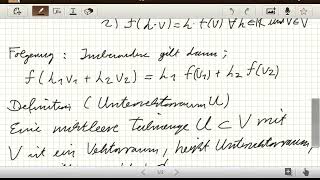 2) f(h·v) = h·f(v) ∀ h∈ℝ und v∈V
Folgerung: Insbesondere gilt dann:
f(h1v1 + h2v2) = h1 f(v1) + h2 f(v2)
Definition (Untervektorraum U)
Eine nichtleere Teilmenge U ⊂ V mit
V ist ein Vektorraum, heißt Untervektorraum,